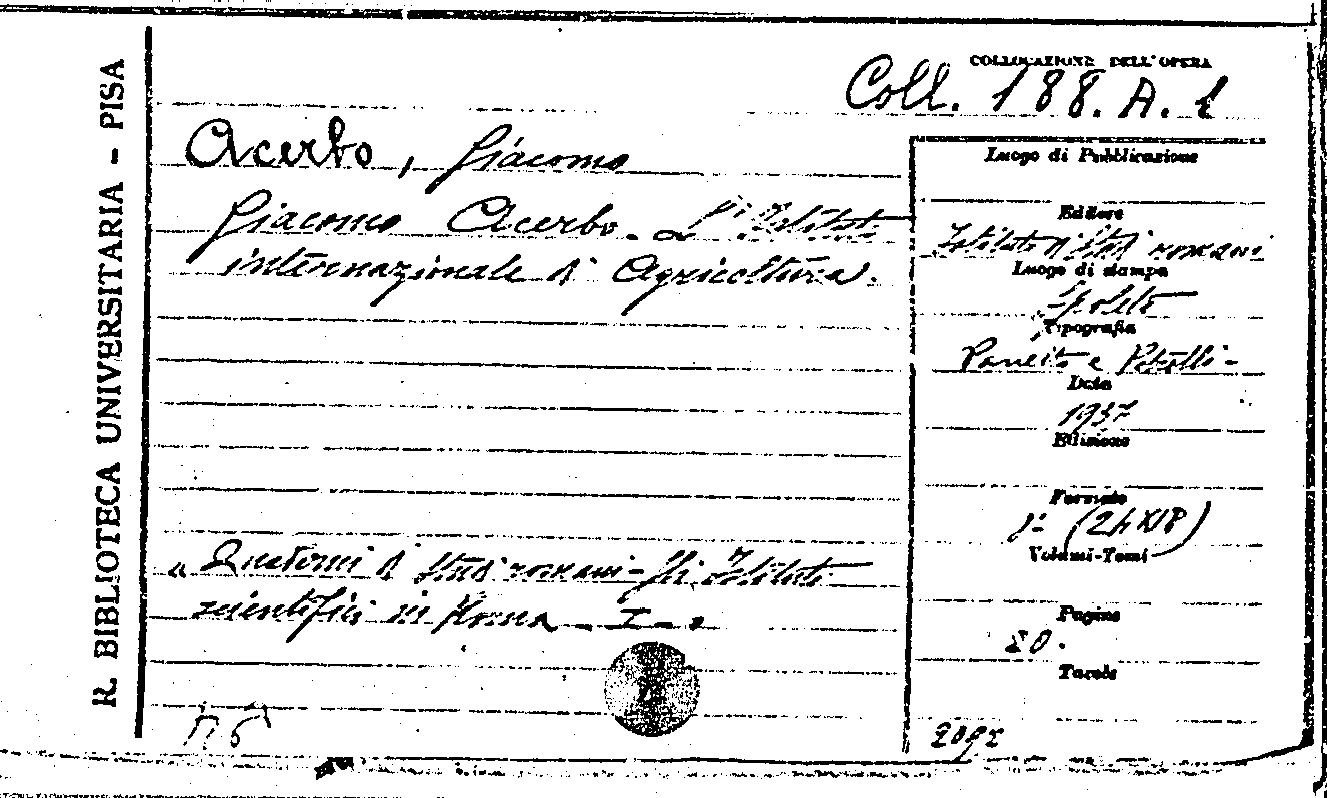 R. BIBLIOTECA UNIVERSITARIA - PISA
COLLOCAZIONE DELL'OPERA
Coll. 188. A. 1
Acerbo, Giacomo
Giacomo Acerbo. L'Istituto
internazionale di Agricoltura.
"Quaderni di Studi romani - Gli Istituti
scientifici in Roma - I - "
Luogo di Pubblicazione
Editore
Istituto di Studi romani
Luogo di stampa
Spoleto
Tipografia
Panetto e Petrelli -
Data
1937
Edizione
Formato
(24x18)
Volumi-Tomi
Pagine
20.
Tavole